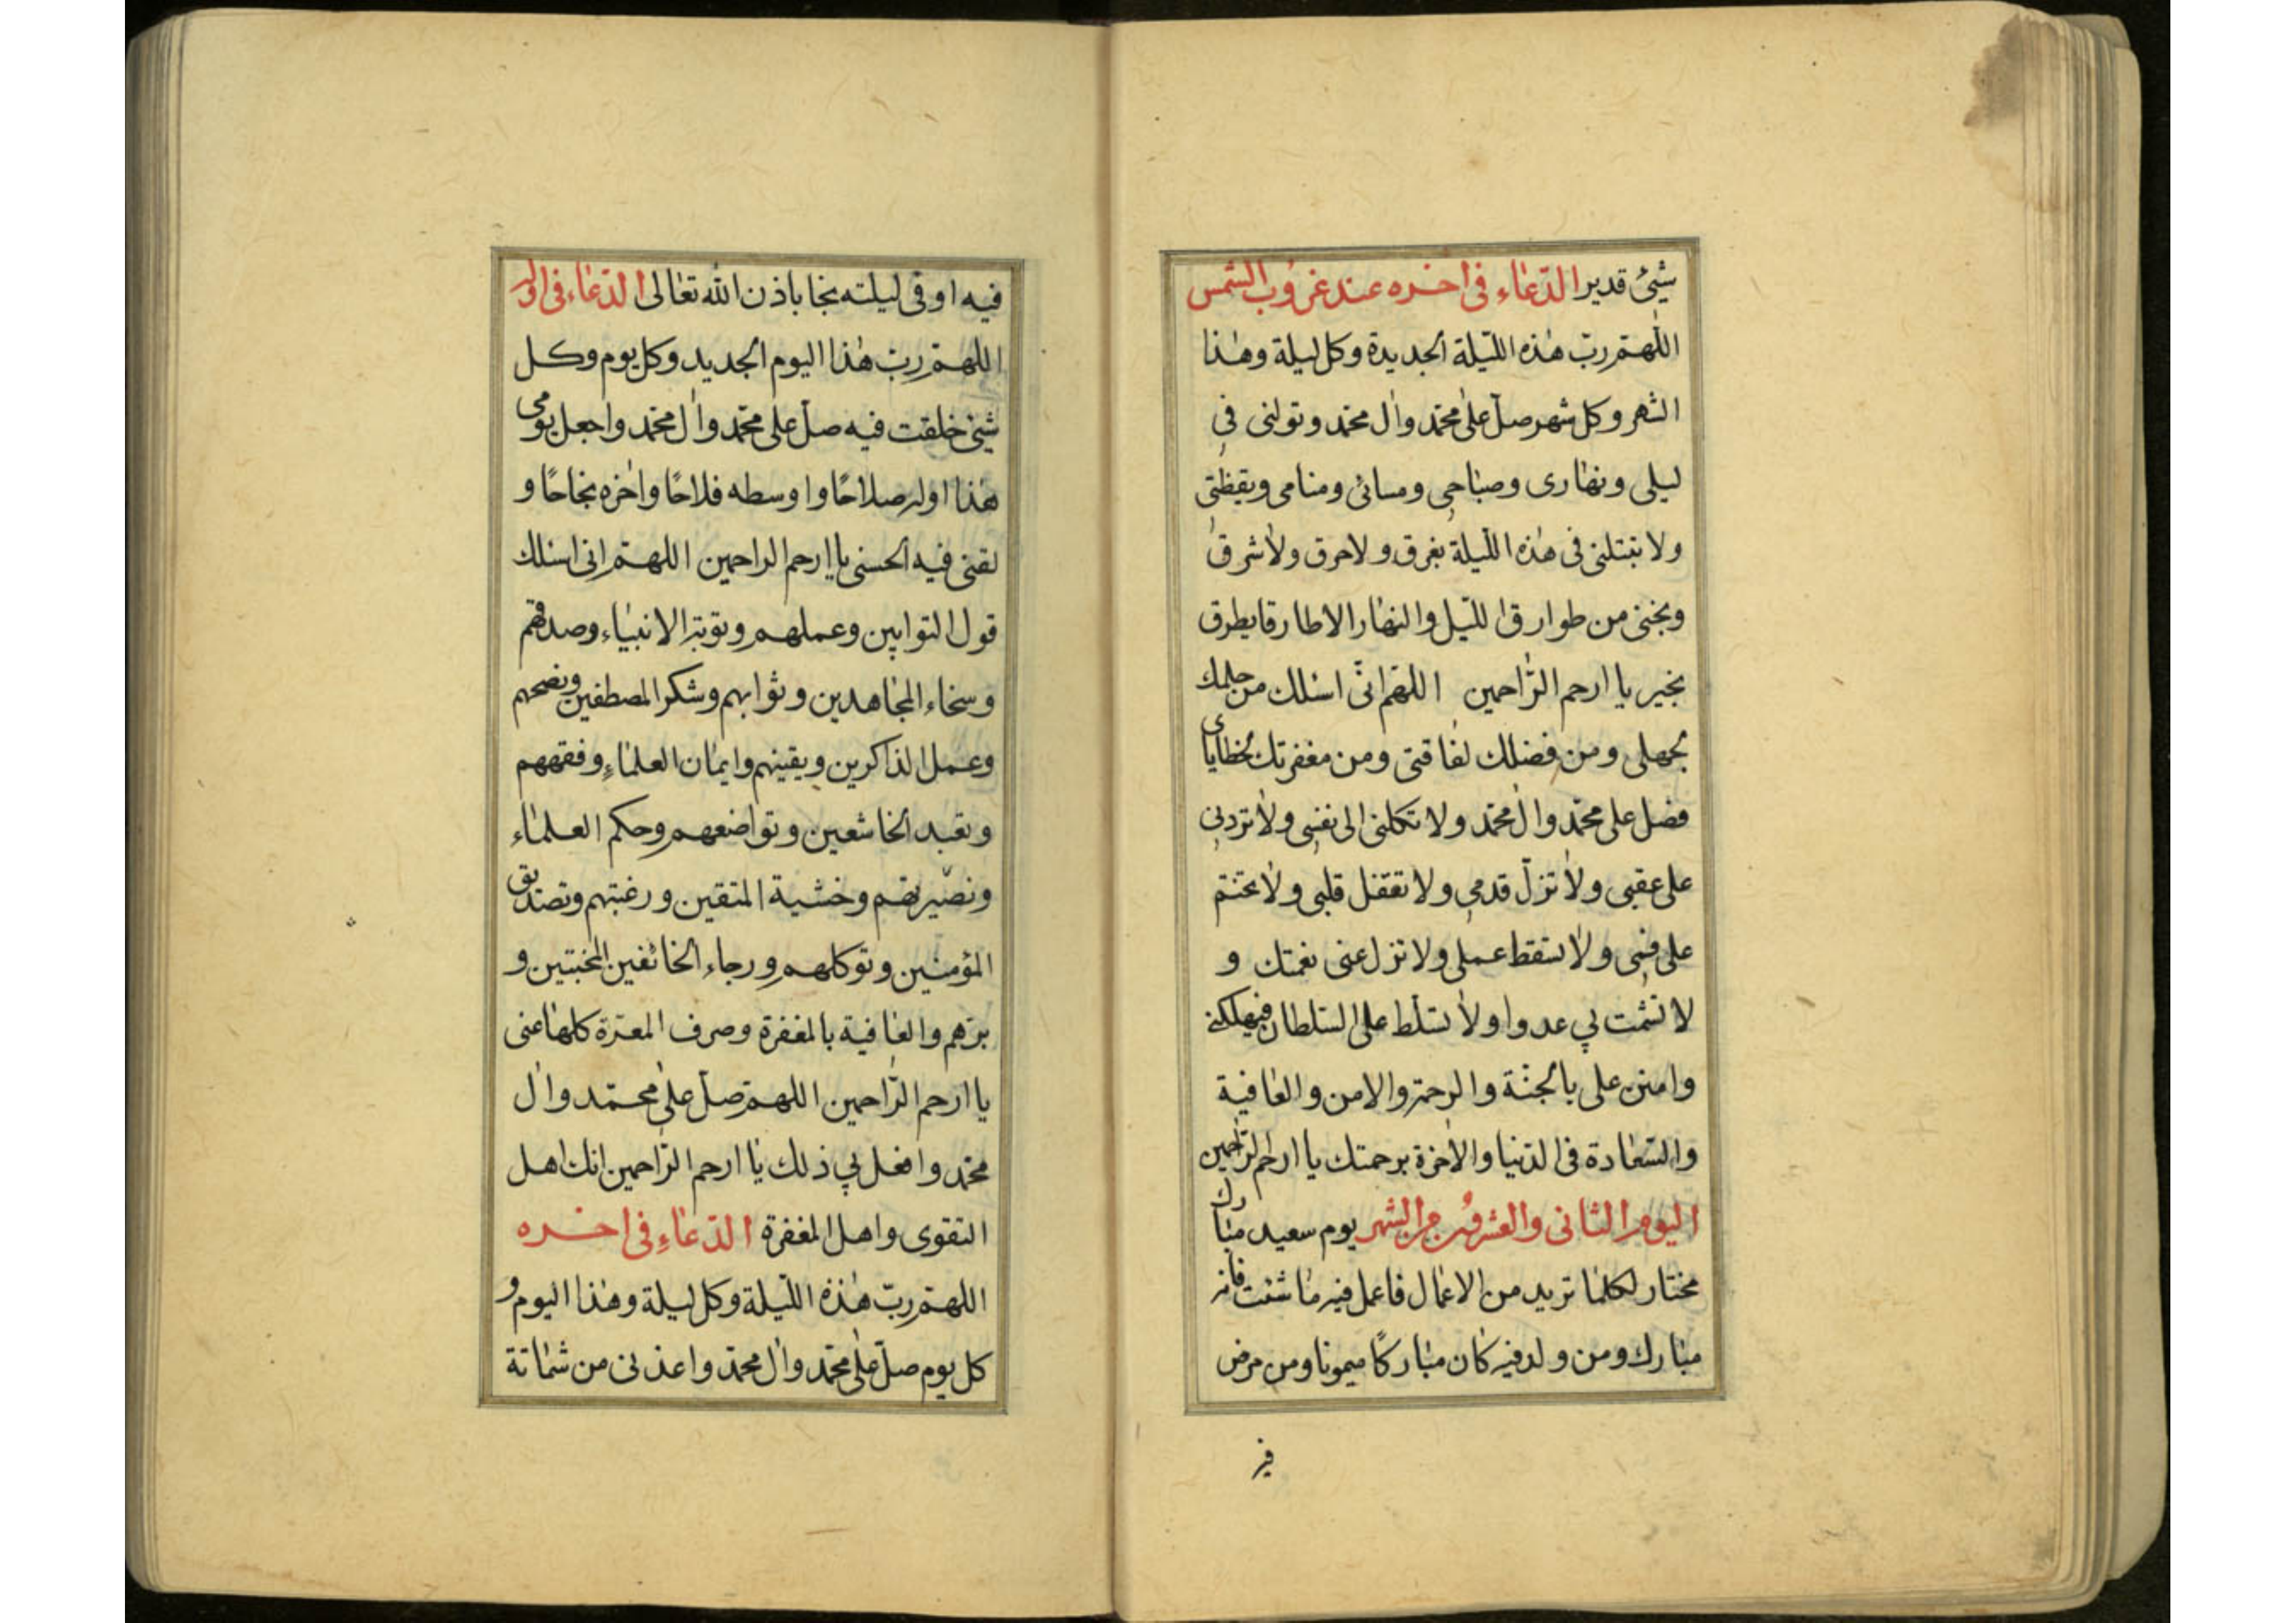 شیئ قدیر الدّعاء فی اخره عند غروب الشمس
اللّهمّ ربّ هذه اللّیلة الجدیدة وکل لیلة وهذا
الشهر وکل شهر صلّ علی محمّد وال محمّد وتولنی فی
لیلی ونهاری وصباحی ومسائی ومنامی ویقظتی
ولا تبتلنی فی هذه اللّیلة بغرق ولا حرق ولا شرق
ونجنی من طوارق اللّیل والنهار الا طارقا یطرق
بخیر یا ارحم الرّاحمین اللهم انّی اسئلك من حلمك
لجهلی ومن فضلك لفاقتی ومن مغفرتك لخطایای
فصل علی محمّد وال محمّد ولا تکلنی الی نفسی ولا تردنی
علی عقبی ولا تزلّ قدمی ولا تقفل قلبی ولا تختم
علی فمی ولا تسقط عملی ولا تزل عنی نعمتك و
لا تشمت بی عدوا ولا تسلّط علیّ السّلطان فیهلکنی
وامنن علی بالجنّة والرحمة والامن والعافیة
والسّعادة فی الدّنیا والاخرة برحمتك یا ارحم الرّاحمین
الیوم الثانی والعشرون من الشهر یوم سعید مبارك
مختار لکلما ترید من الاعمال فاعمل فیه ما شئت فانه
مبارك ومن ولد فیه کان مبارکًا میمونا ومن مرض
فیه
فیه او فی لیلته نجا باذن الله تعالی الدّعاء فی اوله
اللهمّ ربّ هذا الیوم الجدید وکل یوم وکل
شیئ خلقت فیه صلّ علی محمّد وال محمّد واجعل یومی
هذا اوله صلاحًا واوسطه فلاحًا واخره نجاحًا و
لقنی فیه الحسنی یا ارحم الراحمین اللهمّ انی اسئلك
قول التوابین وعملهم وتوبة الانبیاء وصدقهم
وسخاء المجاهدین وثوابهم وشکر المصطفین ونصحهم
وعمل الذاکرین ویقینهم وایمان العلماء وفقههم
وتعبد الخاشعین وتواضعهم وحکم العلماء
وخشیة المتقین ورغبتهم وتصدیق
المؤمنین وتوکلهم ورجاء الخائفین المخبتین و
برّهم والعافیة بالمغفرة وصرف المعرّة کلها عنی
یا ارحم الرّاحمین اللهمّ صلّ علی محمّد وال
محمّد وافعل بی ذلك یا ارحم الرّاحمین انك اهل
التقوی واهل المغفرة الدّعاء فی اخره
اللهمّ ربّ هذه اللّیلة وکل لیلة وهذا الیوم و
کل یوم صلّ علی محمّد وال محمّد واعذنی من شماتة